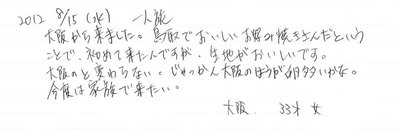 2012 8/15 (水) 一人旅
大阪から来ました。鳥取でおいしいお好み焼きさんだという
ことで、初めて来たんですが、生地がおいしいです。
大阪のと変わらない。じゃっかん大阪のほうが 多いかな。
今度は家族で来たい。
大阪. 33才 女